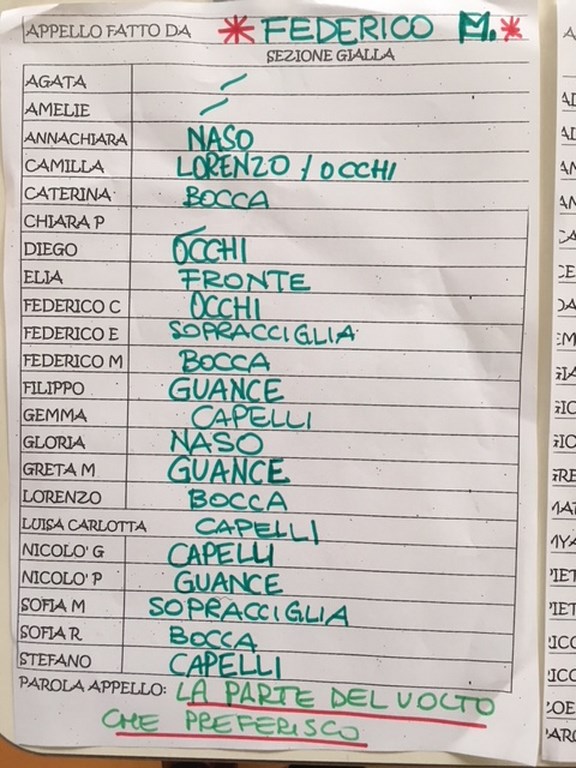 APPELLO FATTO DA * FEDERICO M. *
SEZIONE GIALLA
AGATA –
AMELIE –
ANNACHIARA NASO
CAMILLA LORENZO / OCCHI
CATERINA BOCCA
CHIARA P –
DIEGO OCCHI
ELIA FRONTE
FEDERICO C OCCHI
FEDERICO E SOPRACCIGLIA
FEDERICO M BOCCA
FILIPPO GUANCE
GEMMA CAPELLI
GLORIA NASO
GRETA M GUANCE
LORENZO BOCCA
LUISA CARLOTTA CAPELLI
NICOLO' G CAPELLI
NICOLO' P GUANCE
SOFIA M SOPRACCIGLIA
SOFIA R BOCCA
STEFANO CAPELLI
PAROLA APPELLO: LA PARTE DEL VOLTO
CHE PREFERISCO